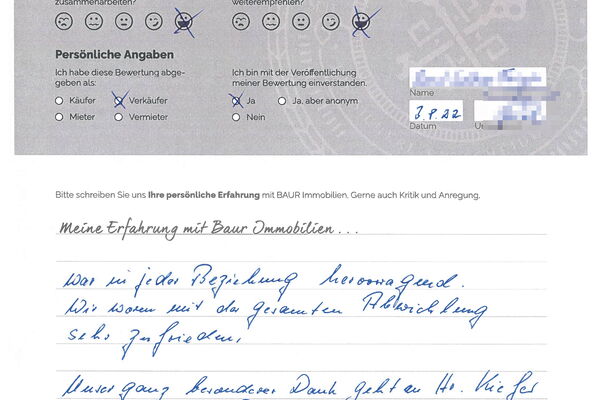 zusammenarbeiten?
weiterempfehlen?
Persönliche Angaben
Ich habe diese Bewertung abge-
geben als:
Käufer Verkäufer
Mieter Vermieter
Ich bin mit der Veröffentlichung
meiner Bewertung einverstanden.
Ja Ja, aber anonym
Nein
Name
3.8.22
Datum
Bitte schreiben Sie uns Ihre persönliche Erfahrung mit BAUR Immobilien. Gerne auch Kritik und Anregung.
Meine Erfahrung mit Baur Immobilien...
war in jeder Beziehung hervorragend.
Wir waren mit der gesamten Abwicklung
sehr zufrieden.
Unser ganz besonderer Dank geht an Hr. Kiefer